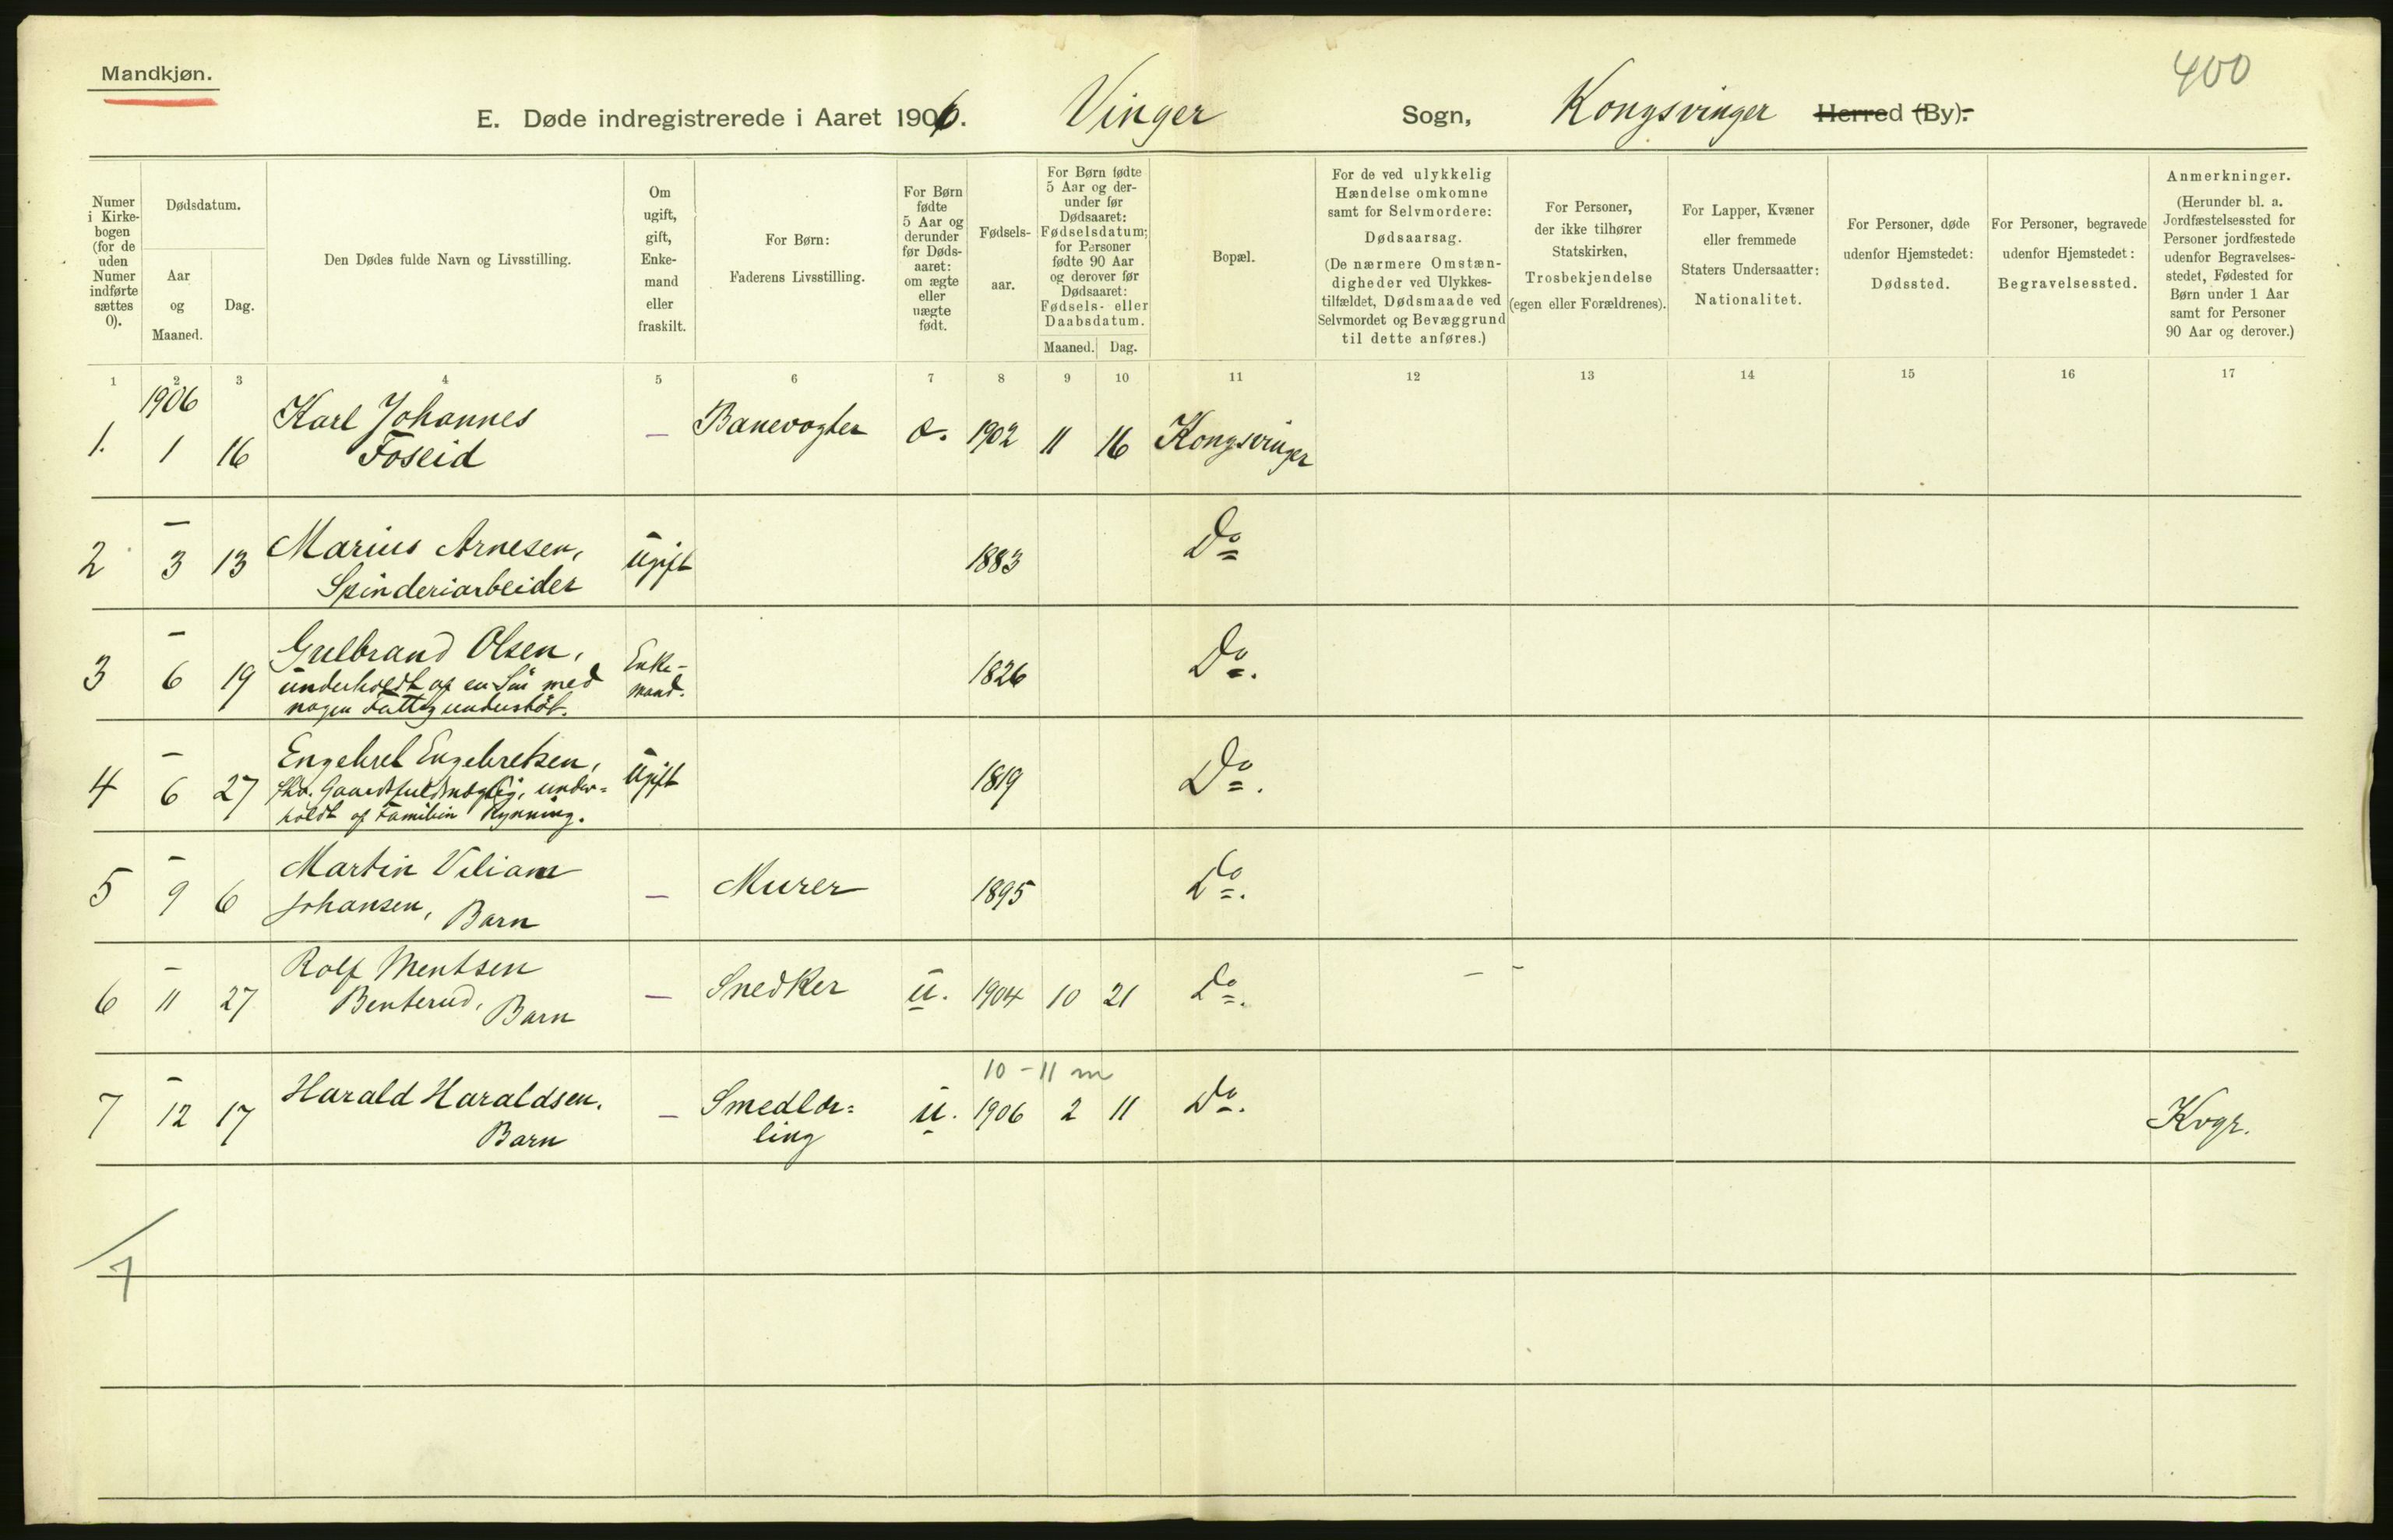 Mandkjøn.
400
E. Døde indregistrerede i Aaret 1906. Vinger Sogn, Kongsvinger Herred (By).
Numer i Kirkebogen (for de uden Numer indførte sættes 0).
Dødsdatum.
Aar og Maaned.
Dag.
Den Dødes fulde Navn og Livsstilling.
Om ugift, gift, Enkemand eller fraskilt.
For Børn: Faderens Livsstilling.
For Børn fødte 5 Aar og derunder før Dødsaaret: om ægte eller uægte født.
Fødselsaar.
For Børn fødte 5 Aar og derunder før Dødsaaret: Fødselsdatum; for Personer fødte 90 Aar og derover før Dødsaaret: Fødsels- eller Daabsdatum.
Maaned. Dag.
Bopæl.
For de ved ulykkelig Hændelse omkomne samt for Selvmordere: Dødsaarsag. (De nærmere Omstændigheder ved Ulykkestilfældet, Dødsmaade ved Selvmordet og Bevæggrund til dette anføres.)
For Personer, der ikke tilhører Statskirken, Trosbekjendelse (egen eller Forældrenes).
For Lapper, Kvæner eller fremmede Staters Undersaatter: Nationalitet.
For Personer, døde udenfor Hjemstedet: Dødssted.
For Personer, begravede udenfor Hjemstedet: Begravelsessted.
Anmerkninger. (Herunder bl. a. Jordfæstelsessted for Personer jordfæstede udenfor Begravelsesstedet, Fødested for Børn under 1 Aar samt for Personer 90 Aar og derover.)
1 2 3 4 5 6 7 8 9 10 11 12 13 14 15 16 17
1906
1. 1 16 Karl Johannes Foseid — Banevogter 1902 11 16 Kongsvinger
2 — 3 13 Marius Arnesen, Spinderiarbeider Ugift 1883 Do
3 — 6 19 Gulbrand Olsen, underholdt af en Søn med nogen Fattigunderstøt. Enkemand. 1826 Do.
4 — 6 27 Engebret Engebretsen, underholdt af Familien Rynning. Ugift 1819 Do.
5 — 9 6 Martin Viliam Johansen, Barn — Murer 1895 Do.
6 — 11 27 Rolf Mentsen Benterud, Barn — Snedker u. 1904 10 21 Do.
10 – 11 m
7 — 12 17 Harald Haraldsen. Barn — Smedlærling u. 1906 2 11 Do. Kvgr.
7